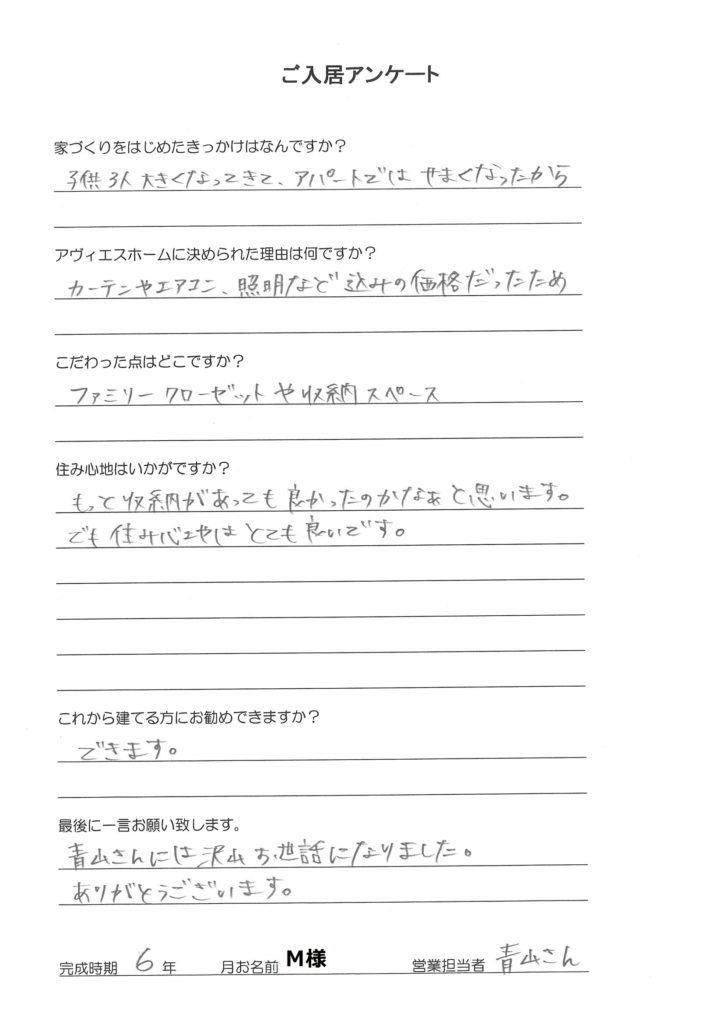 ご入居アンケート
家づくりをはじめたきっかけはなんですか？
子供3人大きくなってきて、アパートではせまくなったから
アヴィエスホームに決められた理由は何ですか？
カーテンやエアコン、照明など込みの価格だったため
こだわった点はどこですか？
ファミリークローゼットや収納スペース
住み心地はいかがですか？
もっと収納があっても良かったのかなぁと思います。
でも住み心地はとても良いです。
これから建てる方にお勧めできますか？
できます。
最後に一言お願い致します。
青山さんには沢山お世話になりました。
ありがとうございます。
完成時期 6年 月お名前 M様 営業担当者 青山さん